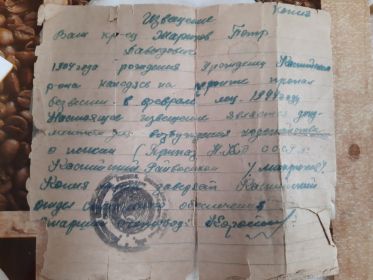 Копия
Извещение
Ваш Жарихов Петр
Давидович
1904 года рождения Уроженец Каспийского
р-она находясь на фронте пропал
безвести в феврале м-ц 1944 году
Настоящее извещение является доку
ментом для возбуждения ходатайства
о пенсии (Приказ Н.К.О СССР №
Каспийский Райвоенком
Копия верна: заведхай Каспийский
отдел обеспечения